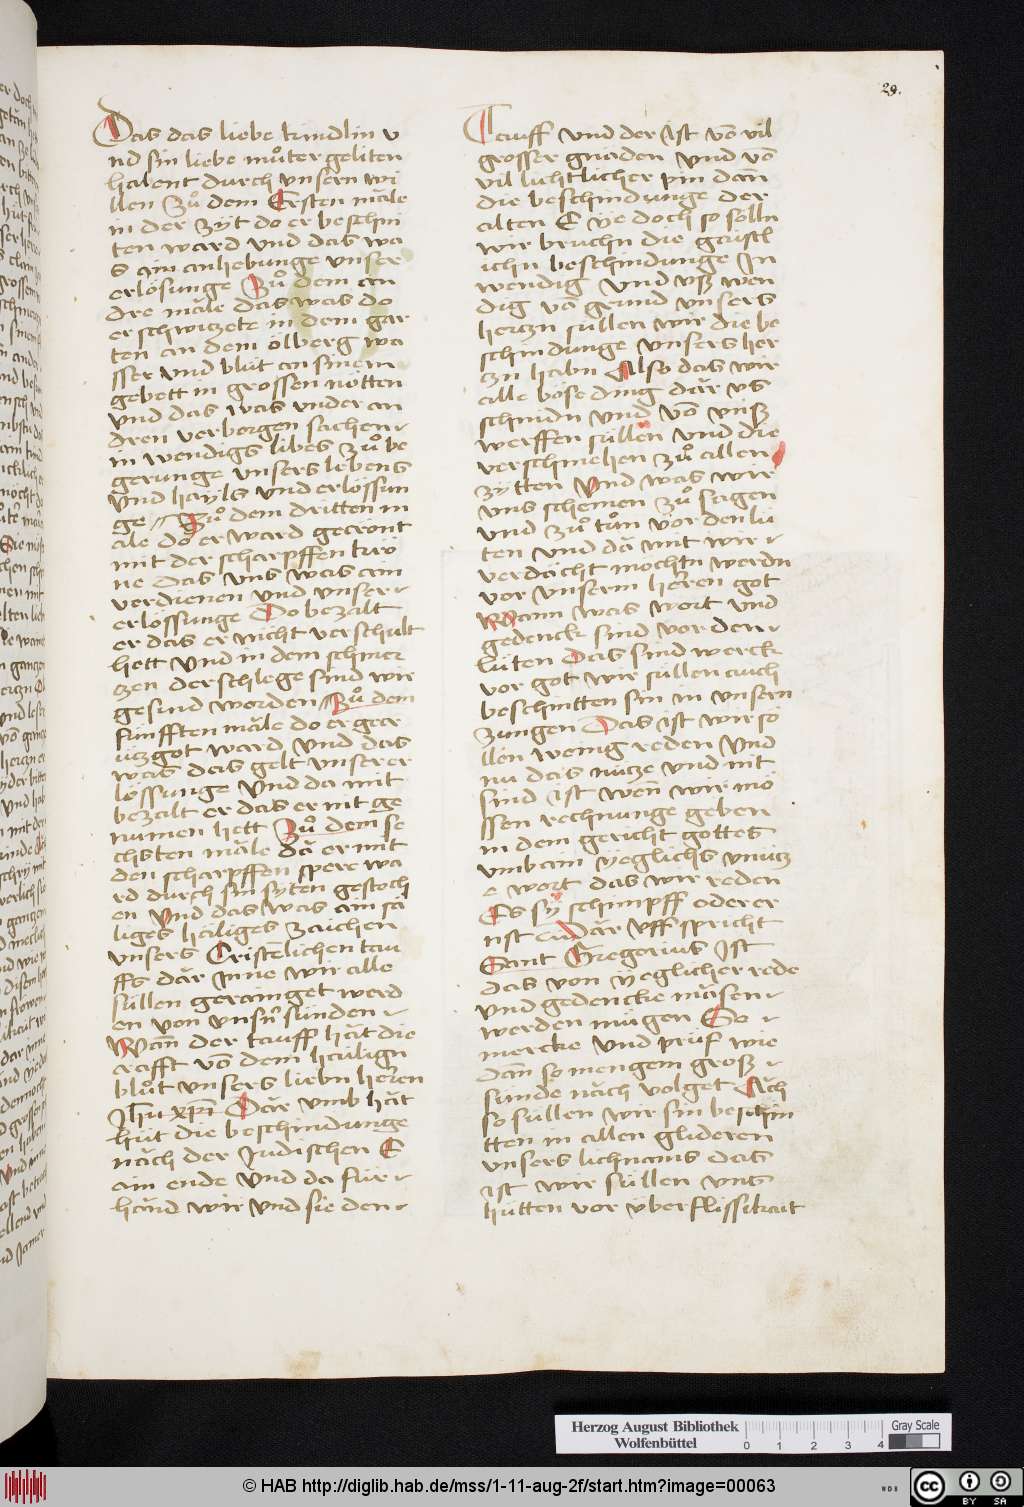 29.
Das das liebe kindlin v
nd sin liebe muͦter geliten
habent durch vnsern wi
llen Zuͦ dem Ersten måle
in der zyt do er beschni
ten ward vnd das wa
s ain anhebunge vnser
erlösunge Zuͦ dem an
dre måle das was do
er schwizete in dem gar
ten an dem ölberg wa
sser vnd blüt an sinem
gebett in grossen nötten
vnd das was vnder an
dren verborgen sachen
in wendigs libes zuͦ be
gerunge vnsers lebens
vnd hayls vnd erlössun
ge // Zuͦ dem dritten m
ale do er ward gecrönt
mit der scharpffen krö
ne das vns was ain
verdienen vnd vnser
erlössunge Do bezalt
er das er nicht verschult
hett vnd in dem schmer
zen der schlege sind wir
gesund worden // Zuͦ dem
fünfften måle do er gecr
ützgot ward vnd das
was das gelt vnser er
lössunge vnd da mit
bezalt er das er nit ge
numen hett Zuͦ dem se
chsten måle dä er mit
den scharpffen spere wa
rd durch sin syten gestoch
en vnd das was ain sä
liges häiliges zaichen
vnsers Cristelichen tau
ffs där Inne wir alle
süllen gerainget werd
en von vnsn̄ sünden
Wan̄ der tauff hät die
crafft vō dem hailign
bluͦt vnsers liebn herren
Jhū xp̄i Där vmb hät
hüt die beschindunge
näch der Jüdischen E
ain ende vnd da für
händ wir vnd sie den
Tauff vnd der Ist vō vil
grosser gnäden vnd vō
vil lichtlicher pin dan̄
die beschindunge der
alten E ye doch so solln
wir bruchn die gaistl
ichn beschindunge In
wendig vnd vsz wen
dig vō grund vnsers
hertzn süllen wir die be
schindunge vnsers her
zn habn Also das wir
alle böse ding där vs
schnidn vnd vō vnsz
werffen süllen vnd die
verschmehen zuͦ allen
zytten vnd was wir
vns schemen zuͦ sagen
vnd zuͦ tuͦn vor den lü
ten vnd dä mit wir
verdächt mochtn werdn
vor vnserm herren got
Wann was wort vnd
gedenck sind vor den
lüten Das sind werck
vor got wir süllen auch
beschnitten sin in vnsern
zungen Das ist wir sö
llen wenig reden vnd
nu das nütze vnd nit
sind Ist wen̄ wir mö
ssen rechnunge geben
in dem gericht gottes
vmb ain yeglichs vnütz
e wort das wir reden
Es sy schimpff oder er
nst där vff spricht
Sant Gregorius Ist
das von yeglicher rede
vnd gedencke mäsen
werden mügen So
mercke vnd prüf wie
dan̄ so mengem grosz
sünde näch volget Ach
so süllen wir sin beschni
tten in allen glideren
vnsers lichnams das
ist wir süllen vns
hütten vor vberflissikait
Herzog August Bibliothek
Wolfenbüttel
0 1 2 3 4
Gray Scale
© HAB http://diglib.hab.de/mss/1-11-aug-2f/start.htm?image=00063
WDB
cc BY SA